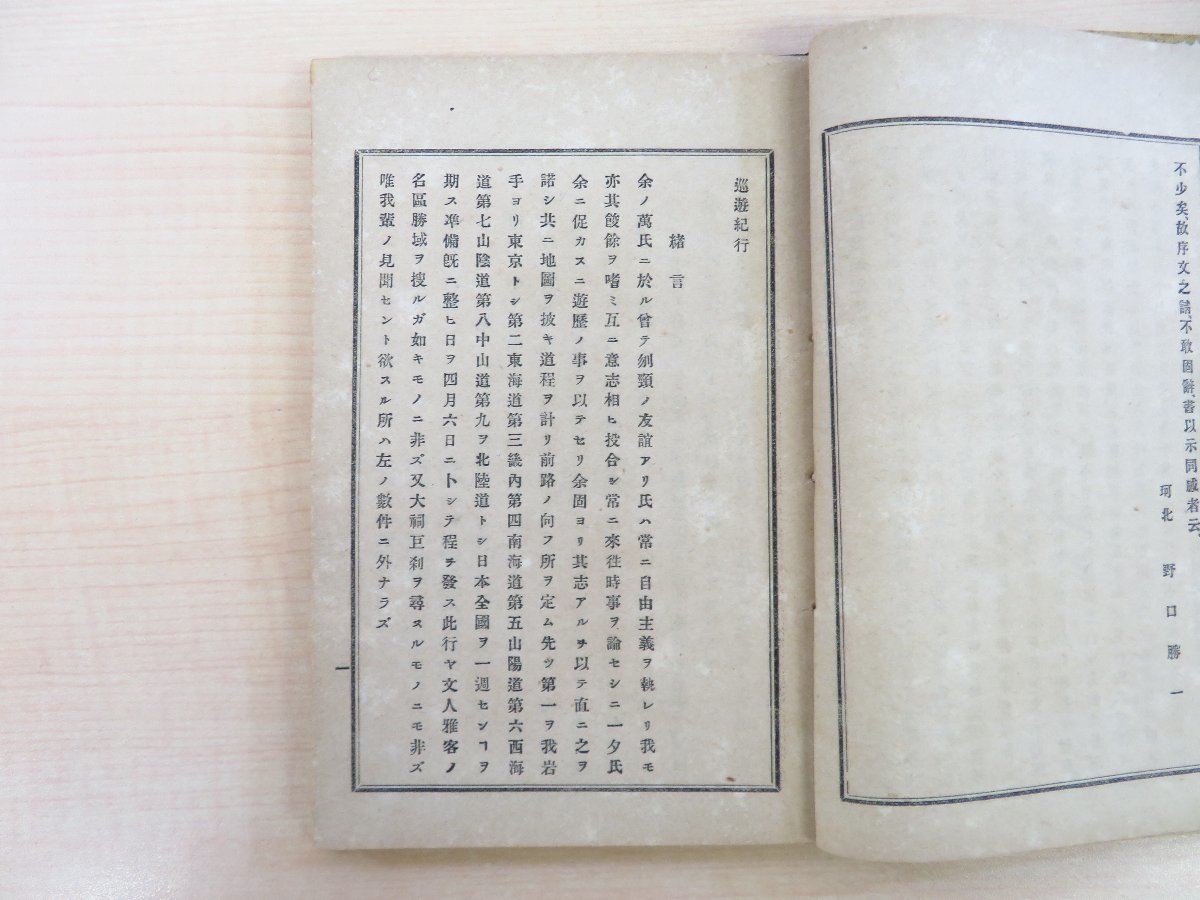 不少矣、故序文之請、不敢固辭、書以示同感者云、
珂北 野口勝一
巡遊紀行
緒言
余ノ萬氏ニ於ル曾テ刎頸ノ友誼アリ氏ハ常ニ自由主義ヲ執レリ我モ
亦其餕餘ヲ嗜ミ互ニ意志相ヒ投合シ常ニ來徃時事ヲ論セシニ一夕氏
余ニ促カスニ遊歷ノ事ヲ以テセリ余固ヨリ其志アルヲ以テ直ニ之ヲ
諾シ共ニ地圖ヲ披キ道程ヲ計リ前路ノ向フ所ヲ定ム先ツ第一ヲ我岩
手ヨリ東京トシ第二東海道第三畿內第四南海道第五山陽道第六西海
道第七山陰道第八中山道第九ヲ北陸道トシ日本全國ヲ一週センヿヲ
期ス凖備旣ニ整ヒ日ヲ四月六日ニトシテ程ヲ發ス此行ヤ文人雅客ノ
名區勝域ヲ搜ルガ如キモノニ非ズ又大祠巨刹ヲ尋ヌルモノニモ非ズ
唯我輩ノ見聞セント欲スル所ハ左ノ數件ニ外ナラズ
一